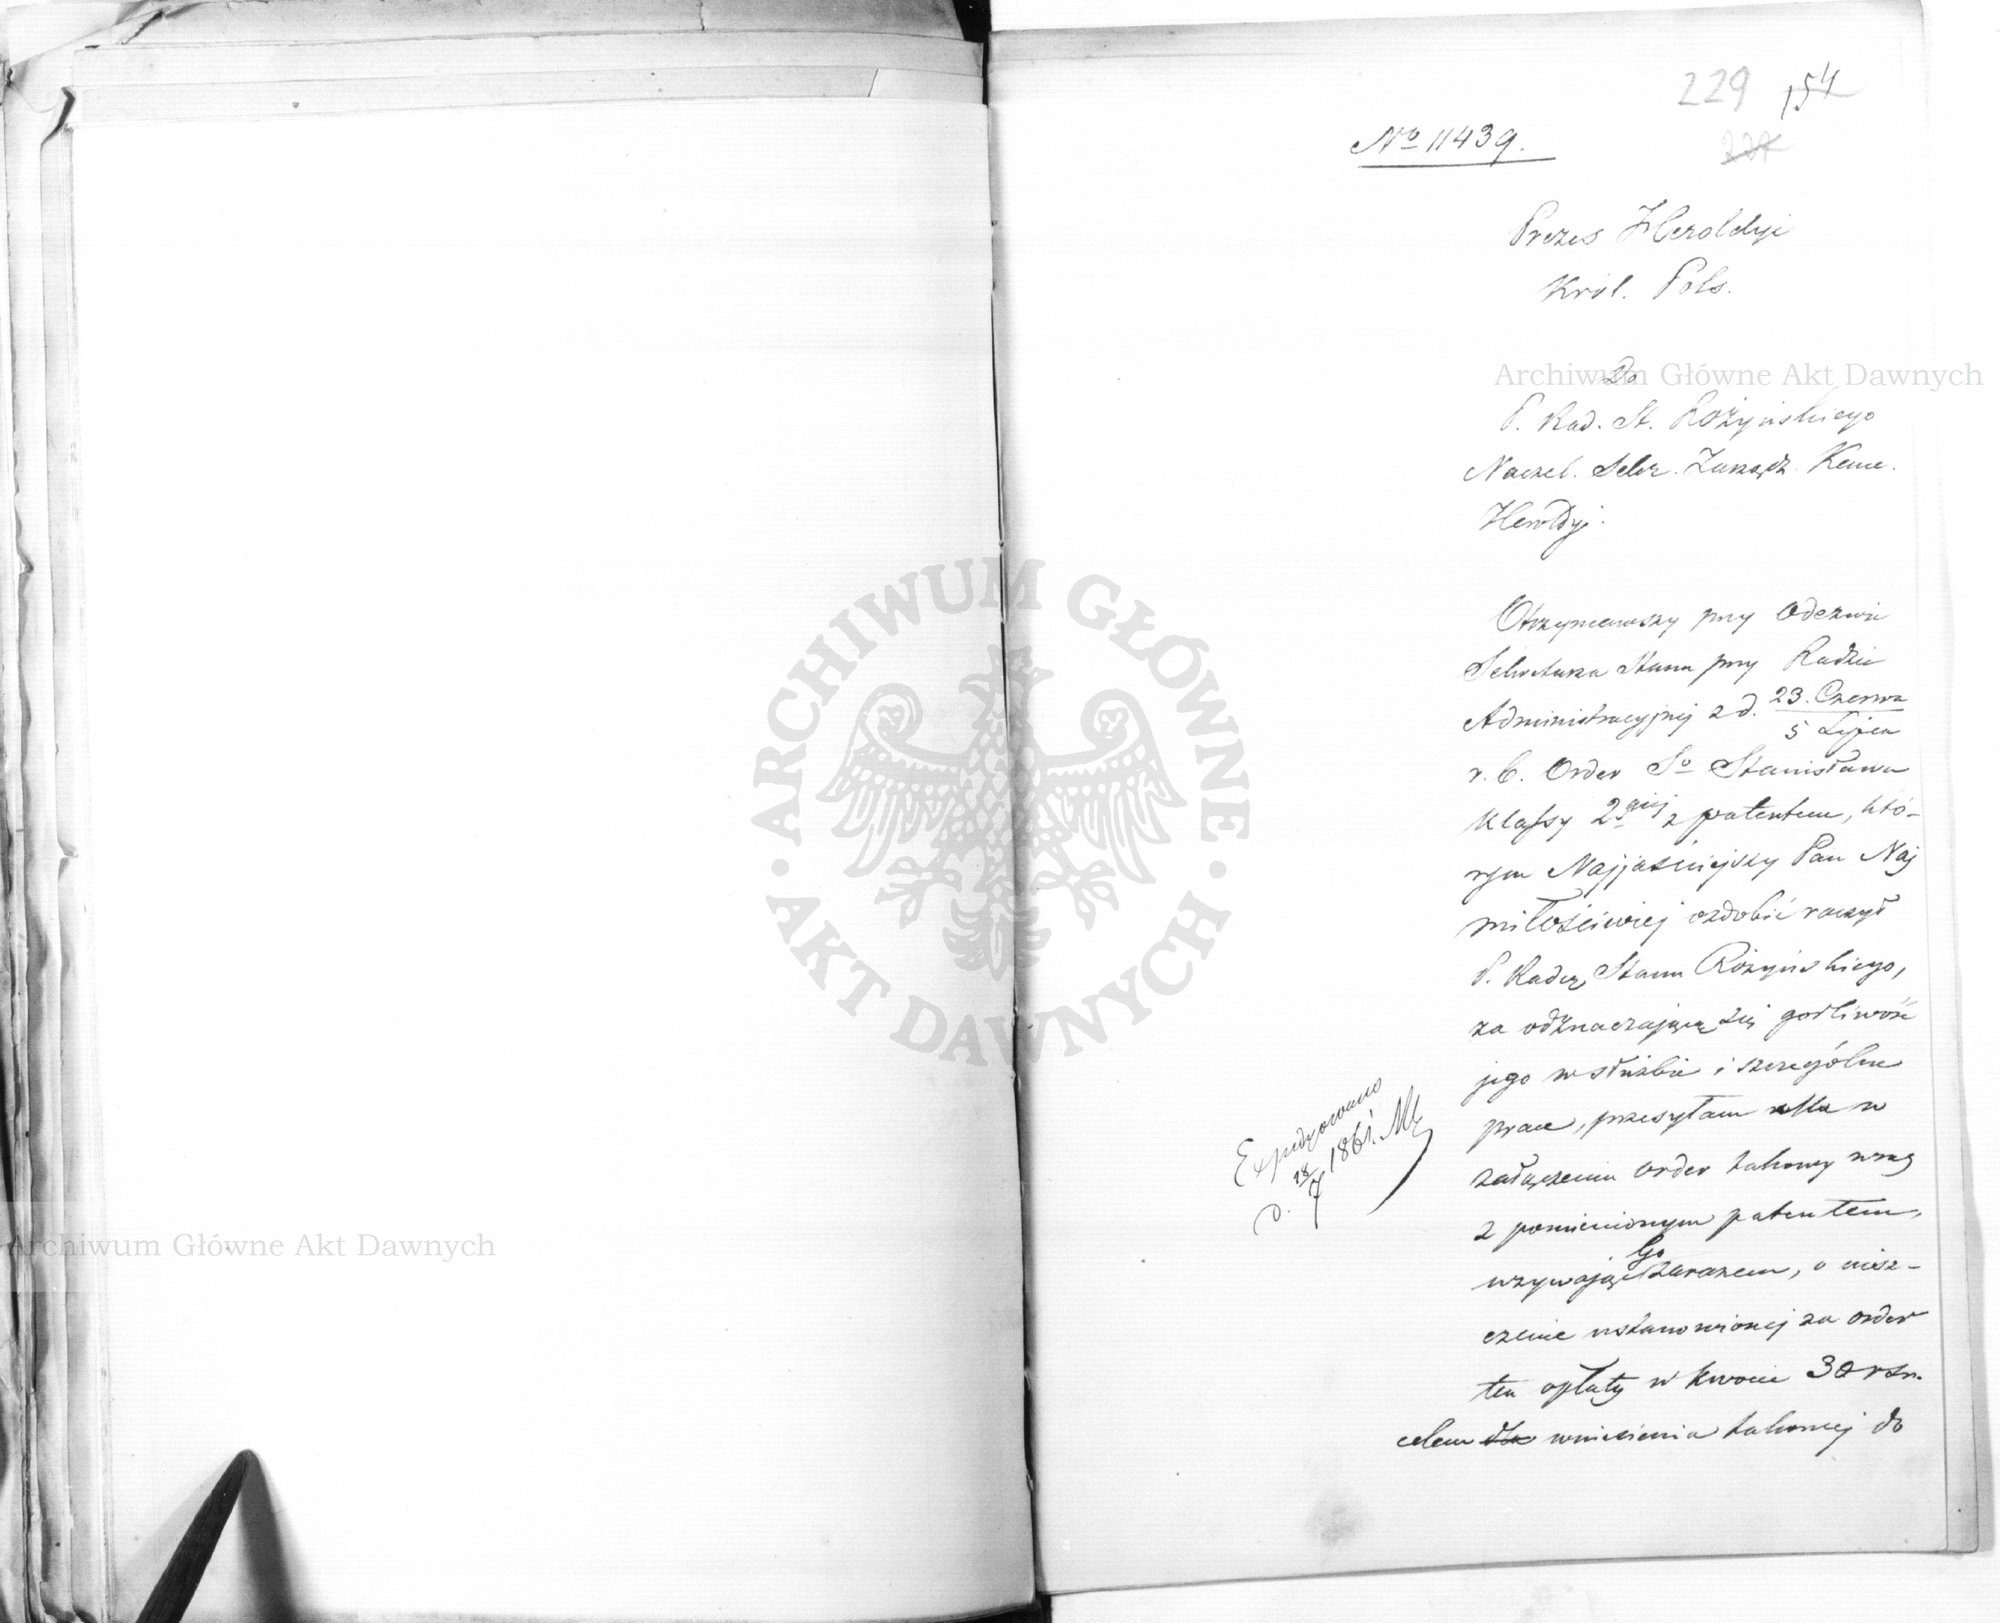 229 154
227
No 11439.
Prezes Heroldyi
Król. Pols.
Do
P. Rad. St. Różyńskiego
Naczel. Sekr. Zarządz. Kanc.
Heroldyi.
Otrzymawszy przy Odezwie
Sekretarza Stanu przy Radzie
Administracyjnej z d. 23. Czerwca
5 Lipca
r. b. Order So Stanisława
klassy 2giej z patentem, któ-
rym Najjaśniejszy Pan Naj
miłościwiej ozdobić raczył
P. Radcę Stanu Różyńskiego,
za odznaczającą się gorliwość
jego w służbie i szczególne
prace, przesyłam w
załączeniu order takowy wraz
z pomienionym patentem,
wzywając Go zarazem, o uisz-
czenie ustanowionej za order
ten opłaty w kwocie 30 rsr.
celem wniesienia takowej do
Expedyowano
d. 28/7 1861.
Archiwum Główne Akt Dawnych
Archiwum Główne Akt Dawnych
ARCHIWUM GŁÓWNE
AKT DAWNYCH